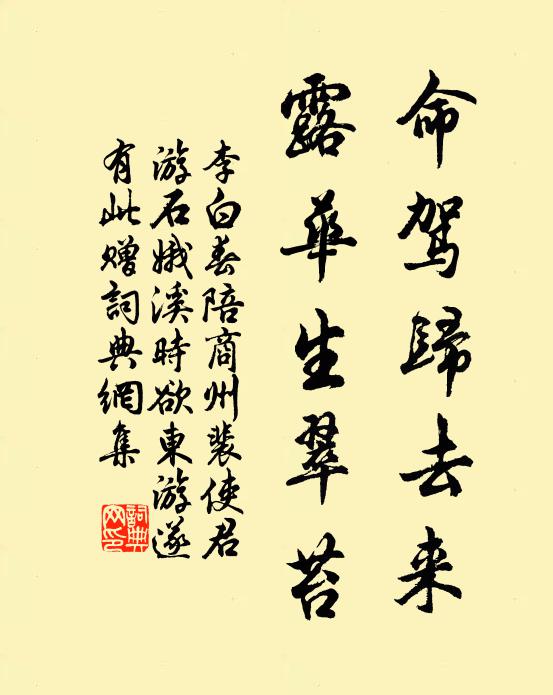 命驾歸去来
露華生翠苔
李白春陪商州裴使君
游石娥溪時欲東游遂
有此赠詞典網集
詞典
网印